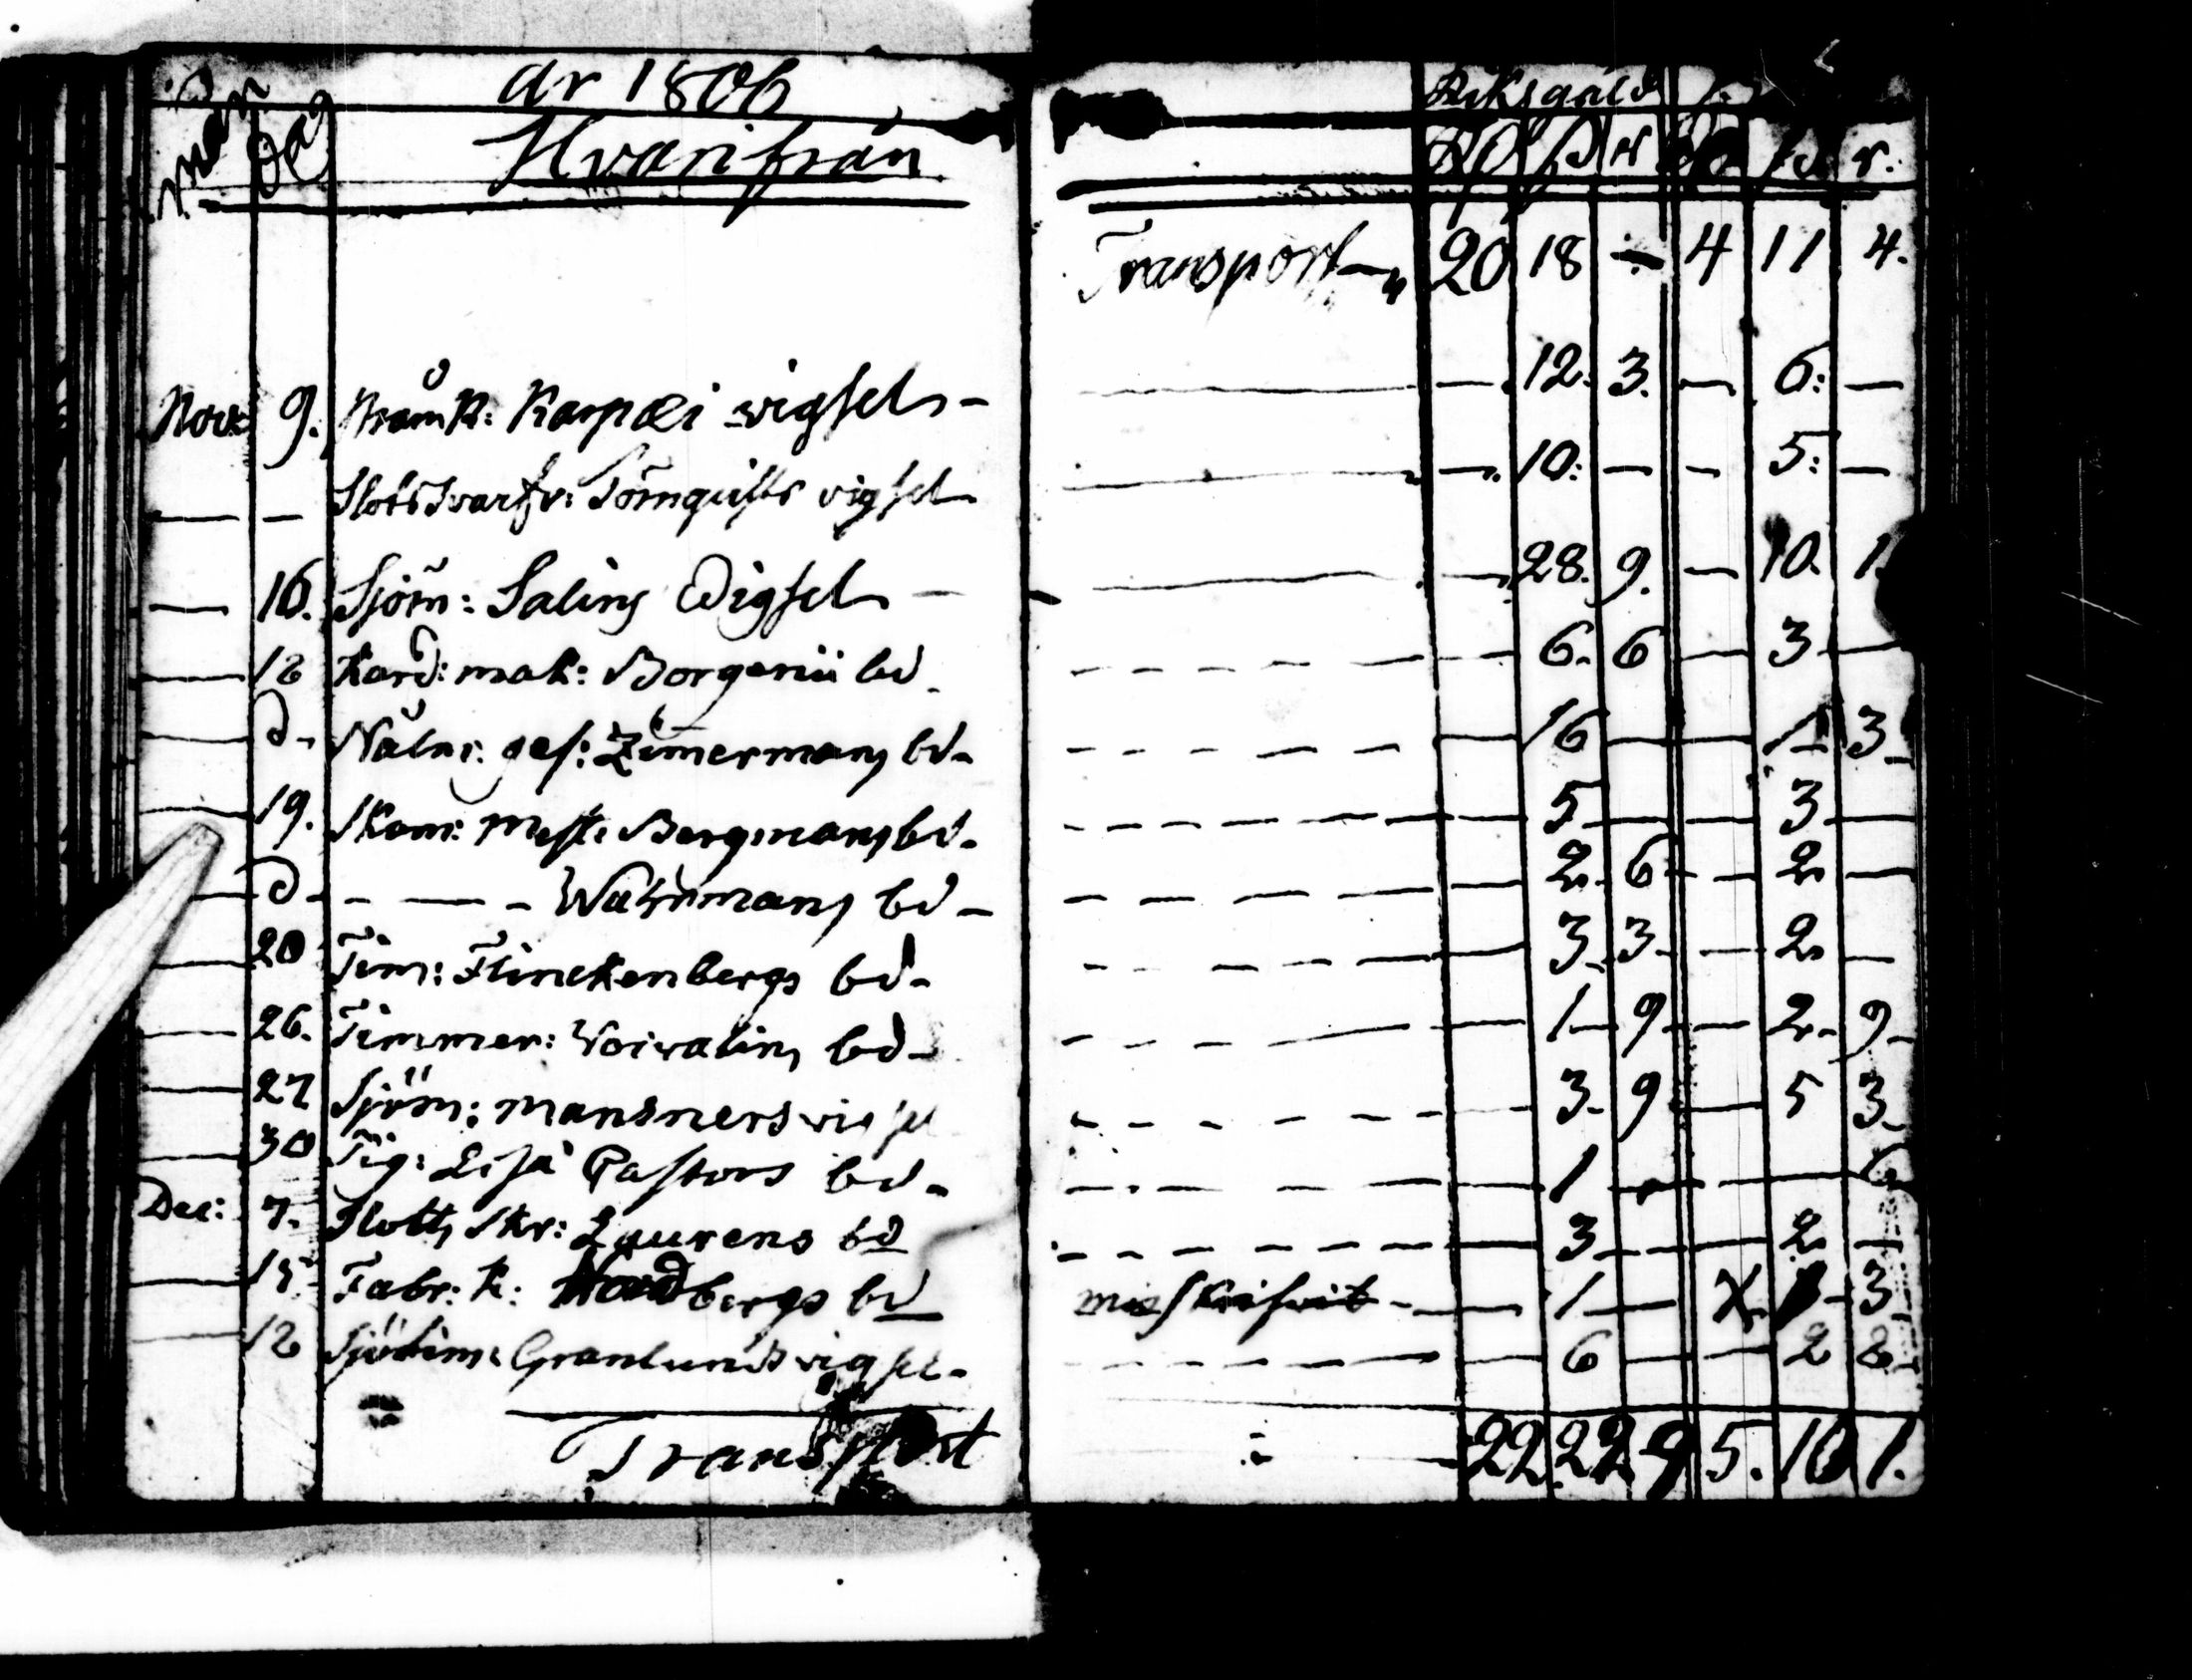 år 1806 Riksgäld
mån Dag Hvarifrån RD ß r ß r.
Transport 20 18 ÷ 4 11 4.
Nov: 9. Kam R: Karpæi wigsel - — 12. 3. — 6: —
— — Slotssvarfv: Törnquists vigsel — 10: — — 5: —
— 16. Sjöm: Salins Wigsel — — 28. 9. — 10. 1.
— 12 Kard: mak: Borgenii bd — 6. 6 — 3 —
— d. Nålm: ges: Zimermans bd — 16 — 1 3
— 19. Skom: mest: Bergmans bd. — 5 — 3 —
— d - — - Wahrmans bd — 2. 6 — 2 —
— 20 Tim: Flinckenbergs bd — 3. 3 — 2 —
— 26. Timmer: Woivalins bd — 1 9 — 2 9
— 27 Sjöm: Mansners vigsel — 3. 9 — 5 3
— 30 Tig: Lisa Pastors bd — 1 — — 6
Dec: 7. Slotts skr: Laurens bd — 3 — — 2 —
— 15 Fabr: K: Nordbergs bd — 1 — 3
— 12 Sjötim: Granlunds vigsel. — 6 — — 2 8
Transport 22 22 9 5. 10 1.